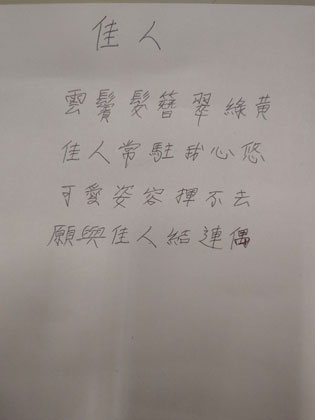 佳人
雲鬢髮簪翠綠黃
佳人常駐我心悠
可愛姿容揮不去
願與佳人結連偶